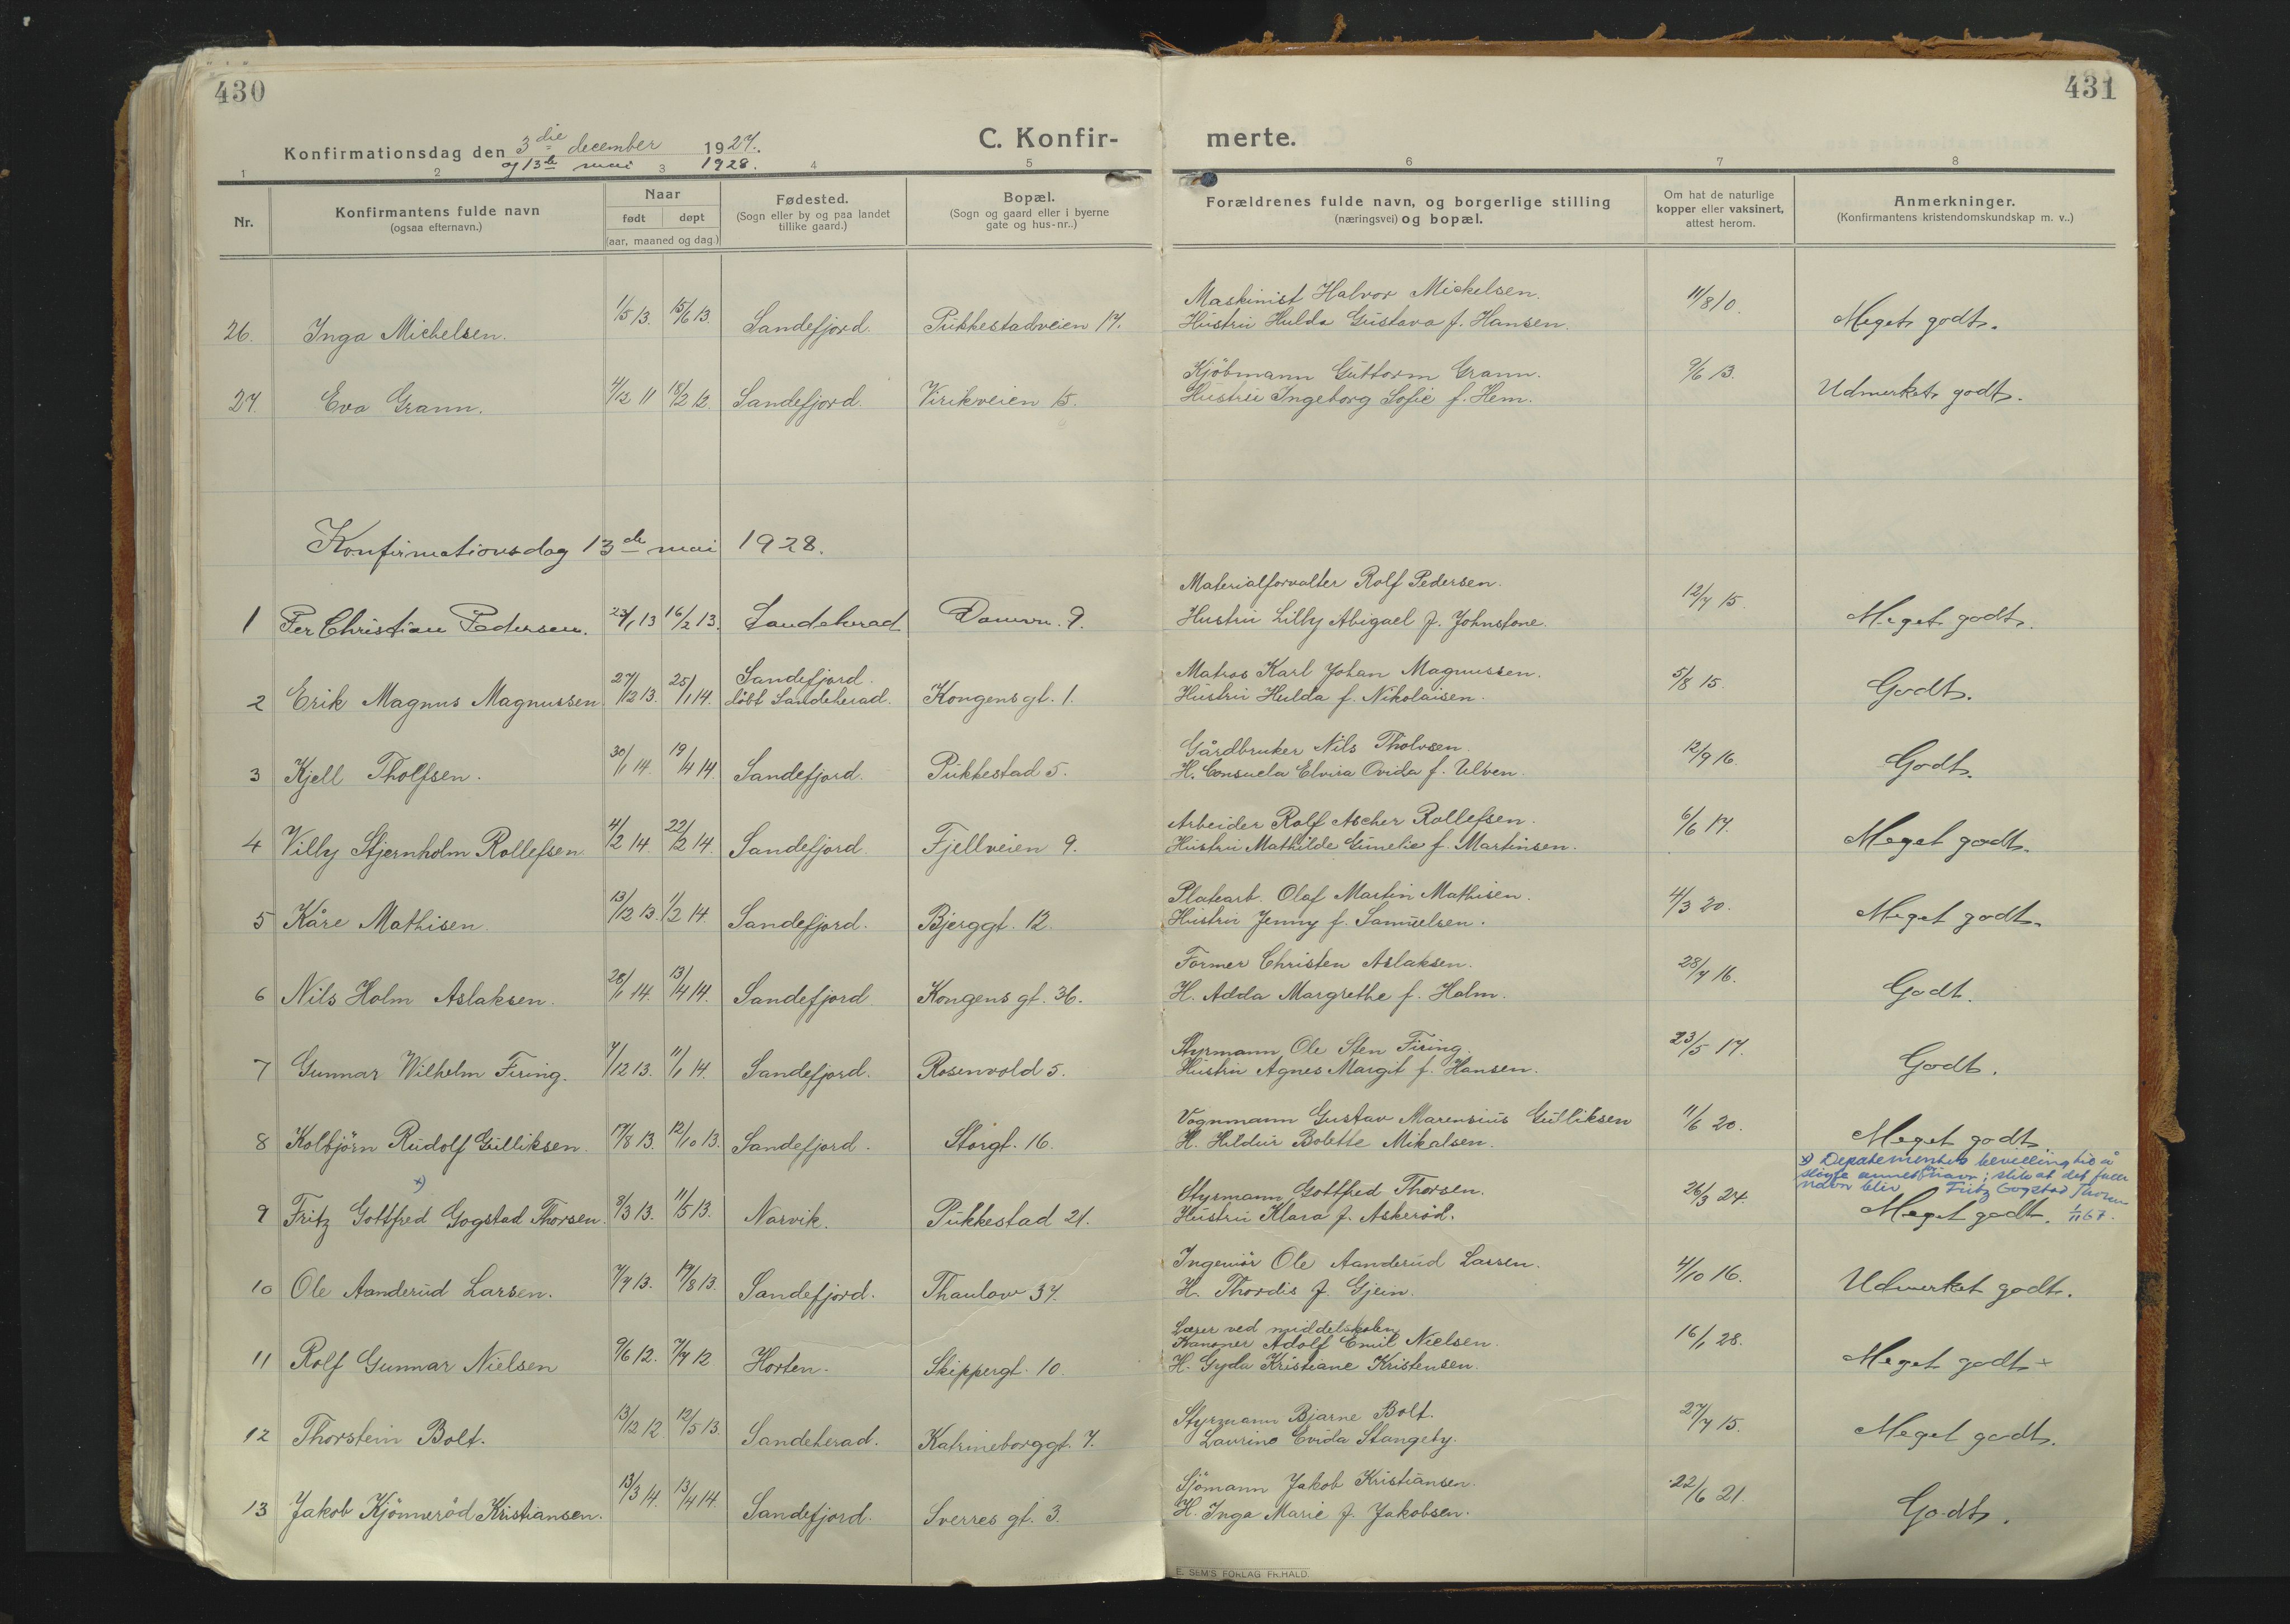 430
431
Konfirmationsdag den 3die december 1927.
og 13de mai 1928.
C. Konfir-
merte.
1 2 3 4 5 6 7 8
Nr.
Konfirmantens fulde navn
(ogsaa efternavn.)
Naar
født døpt
(aar, maaned og dag.)
Fødested.
(Sogn eller by og paa landet
tillike gaard.)
Bopæl.
(Sogn og gaard eller i byerne
gate og hus-nr..)
Forældrenes fulde navn, og borgerlige stilling
(næringsvei) og bopæl.
Om hat de naturlige
kopper eller vaksinert,
attest herom.
Anmerkninger.
(Konfirmantens kristendomskundskap m. v..)
26. Inga Michelsen. 1/5 13. 15/6 13. Sandefjord. Pukkestadveien 17. Maskinist Halvor Mickelsen. 11/8 10. Meget godt.
Hustru Hulda Gustava f. Hansen.
27. Eva Grann. 4/12 11 18/2 12. Sandefjord. Virikveien 15. Kjöbmann Guttorm Grann. 9/6 13. Udmerket godt.
Hustru Ingeborg Sofie f. Hem.
Konfirmationsdag 13de mai 1928.
1 Per Christian Pedersen. 23/1 13 16/2 13. Sandeherad Damvn. 9. Materialforvalter Rolf Pedersen. 12/7 15. Meget godt.
Hustru Lilly Abigael f. Johnstone.
2 Erik Magnus Magnussen 27/12 13. 25/1 14. Sandefjord. Kongensgt. 1. Matros Karl Johan Magnussen. 5/8 15. Godt.
döbt Sandeherad. Hustru Hulda f. Nikolaisen.
3 Kjell Tholfsen. 30/1 14. 19/4 14. Sandefjord. Pukkestad 5. Gårdbruker Nils Tholvsen. 12/9 16. Godt.
H. Consuela Elvira Ovida f. Ulven.
4 Villy Stjernholm Rollefsen 4/2 14. 22/2 14. Sandefjord. Fjellveien 9. Arbeider Rolf Ascher Rollefsen. 6/6 17. Meget godt.
Hustru Mathilde Gunelie f. Martinsen.
5 Kåre Mathisen. 13/12 13. 1/2 14. Sandefjord. Bjerggt. 12. Platearb. Olaf Martin Mathisen. 4/3 20. Meget godt.
Hustru Jenny f. Samuelsen.
6 Nils Holm Aslaksen. 28/1 14. 13/4 14. Sandefjord Kongens gt. 36. Former Christen Aslaksen. 28/7 16. Godt.
H. Adda Margrethe f. Holm.
7 Gunnar Wilhelm Firing. 7/12 13. 11/1 14. Sandefjord. Rosenvold 5. Styrmann Ole Sten Firing. 23/5 17. Godt.
Hustru Agnes Margit f. Hansen.
8 Kolbjörn Rudolf Gulliksen. 17/8 13. 12/10 13. Sandefjord. Storgt. 16. Vognmann Gustav Marensius Gulliksen 11/6 20. Meget godt.
H. Hildur Bolette Mikalsen.
x) Departementets bevilling til å
sløyfe annet fornavn; slik at det fulle
navn blir Fritz Gogstad Thorsen
1/11 67.
9 Fritz Gottfred x) Gogstad Thorsen. 8/3 13. 11/5 13. Narvik. Pukkestad 21. Styrmann Gottfred Thorsen. 26/3 24. Meget godt.
Hustru Klara f. Askeröd.
10 Ole Aanderud Larsen. 7/7 13. 17/8 13. Sandefjord. Thaulow 37. Ingeniör Ole Aanderud Larsen. 4/10 16. Udmerket godt.
H. Thordis f. Gjein.
11 Rolf Gunnar Nielsen 9/6 12. 7/7 12 Horten. Skippergt. 10. Lærer ved middelskolen 16/1 28. Meget godt
Kanoner Adolf Emil Nielsen.
H. Gyda Kristiane Kristensen.
12 Thorstein Bolt. 13/12 12 12/5 13. Sandeherad. Katrineborggt. 7. Styrmann Bjarne Bolt. 27/7 15. Meget godt.
Laurine Evida Stangeby.
13 Jakob Kjönneröd Kristiansen. 13/3 14. 13/4 14. Sandefjord. Sverres gt. 3. Sjömann Jakob Kristiansen. 22/6 21. Godt.
H. Inga Marie f. Jakobsen.
E. SEM'S FORLAG FR.HALD.